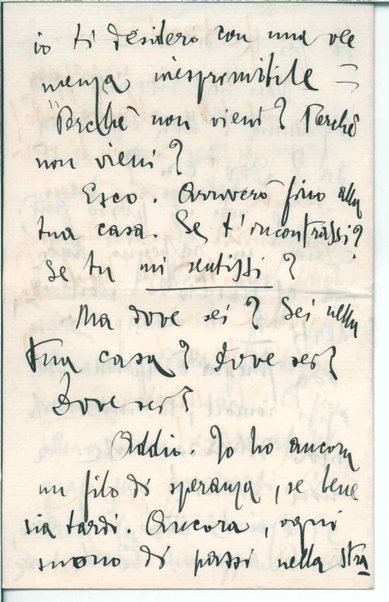 io ti desidero con una vee
menza inesprimibile =
"Perché non vieni? Perché
non vieni?
Esco. Arriverò fino alla
tua casa. Se t'incontrassi?
Se tu mi sentissi?
Ma dove sei? Sei nella
tua casa? Dove sei?
Dove sei?
Addio. Io ho ancora
un filo di speranza, se bene
sia tardi. Ancora ogni
suono di passi nella stra